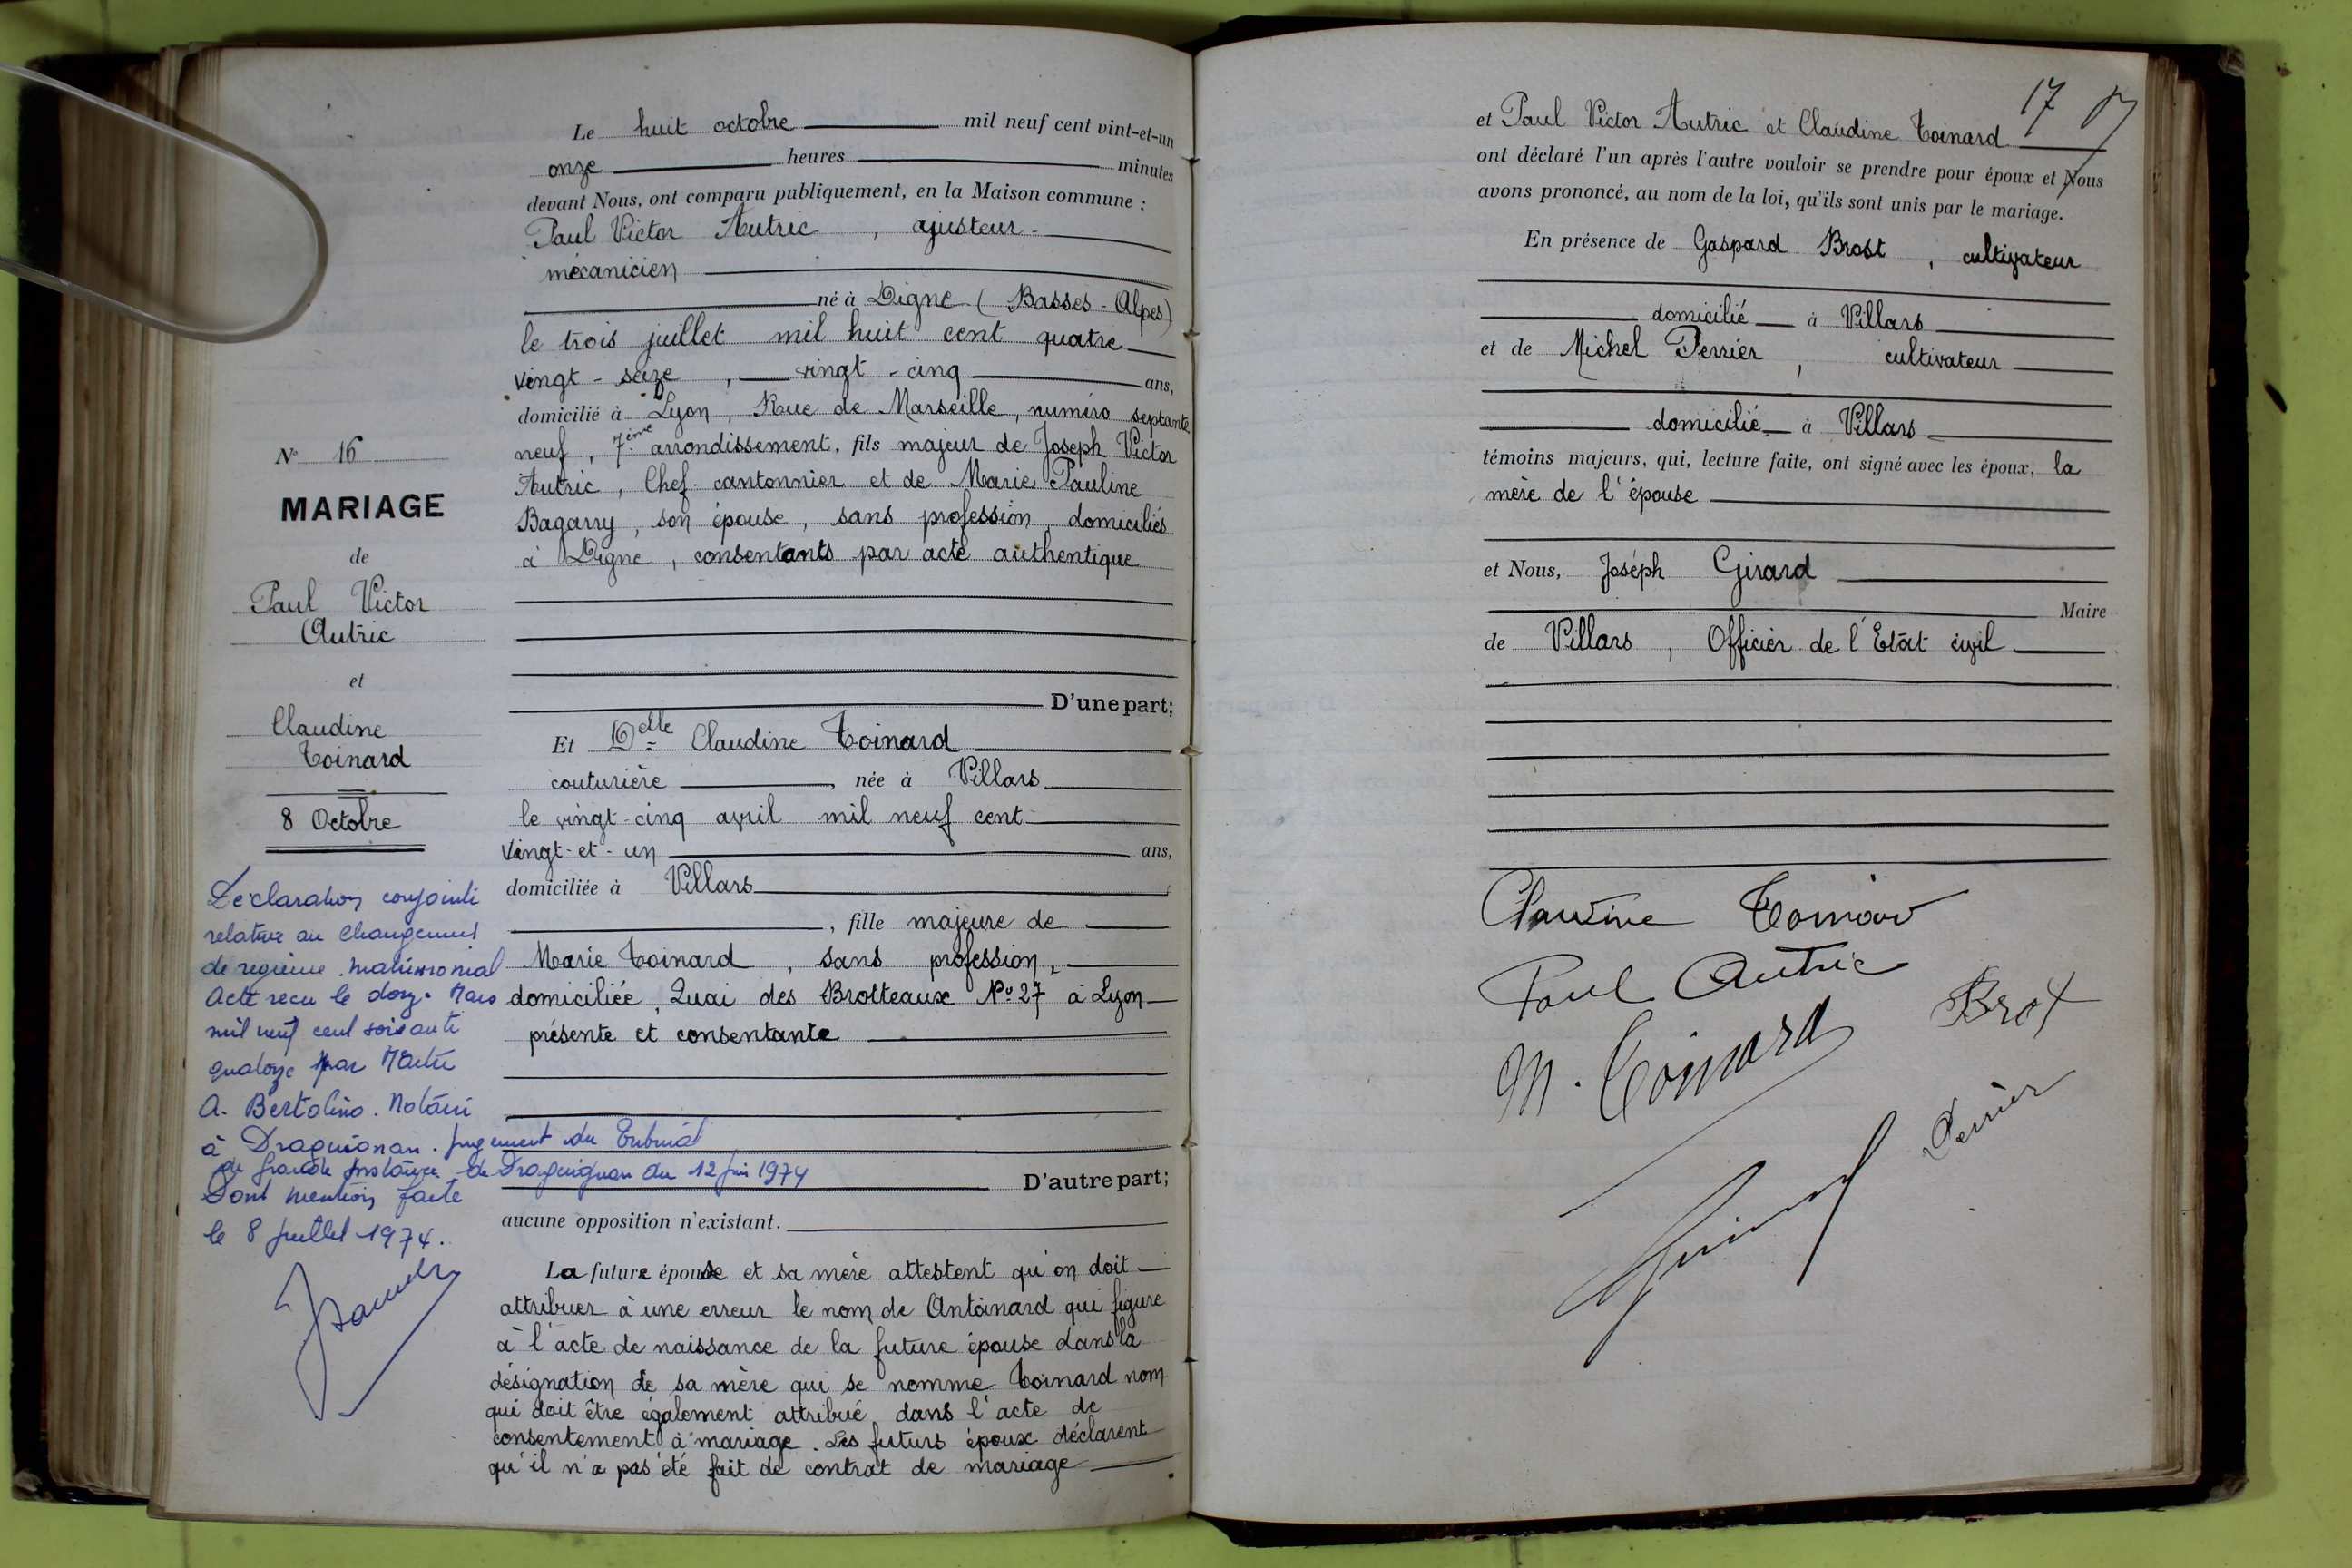 Le huit octobre mil neuf cent vint-et-un
onze heures minutes
devant Nous, ont comparu publiquement, en la Maison commune :
Paul Victor Autric, ajusteur-
mécanicien
né à Digne (Basses-Alpes)
le trois juillet mil huit cent quatre
vingt-seize, vingt-cinq ans,
domicilié à Lyon, Rue de Marseille, numéro septante
neuf, 7ème arrondissement, fils majeur de Joseph Victor
Autric, Chef-cantonnier et de Marie Pauline
Bagarry, son épouse, sans profession, domiciliés
à Digne, consentants par acte authentique
D'une part;
Et Delle Claudine Toinard
couturière, née à Villars
le vingt-cinq avril mil neuf cent
vingt-et-un ans,
domiciliée à Villars
, fille majeure de
Marie Toinard, sans profession,
domiciliée, Quai des Brotteaux No 27 à Lyon
présente et consentante
D'autre part;
aucune opposition n'existant.
La future épouse et sa mère attestent qu'on doit
attribuer à une erreur le nom de Antoinard qui figure
à l'acte de naissance de la future épouse dans la
désignation de sa mère qui se nomme Toinard nom
qui doit être également attribué dans l'acte de
consentement à mariage. Les futurs époux déclarent
qu'il n'a pas été fait de contrat de mariage
No 16
MARIAGE
de
Paul Victor
Autric
et
Claudine
Toinard
8 Octobre
Déclaration conjointe
relative au changement
de régime matrimonial
Acte recu le douze Mars
mil neuf cent soixante
quatorze par Maître
A. Bertolino. Notaire
à Draguignan. jugement du Tribunal
de Grande Instance de Draguignan du 12 juin 1974
Dont mention faite
le 8 juillet 1974.
17
et Paul Victor Autric et Claudine Toinard
ont déclaré l'un après l'autre vouloir se prendre pour époux et Nous
avons prononcé, au nom de la loi, qu'ils sont unis par le mariage.
En présence de Gaspard Brost, cultivateur
domicilié à Villars
et de Michel Perrier, cultivateur
domicilié à Villars
témoins majeurs, qui, lecture faite, ont signé avec les époux, la
mère de l'épouse
et Nous, Joseph Girard
Maire
de Villars, Officier de l'Etat civil
Claudine Toinard
Paul Autric
M. Toinard
Brot
Perrier
Girard